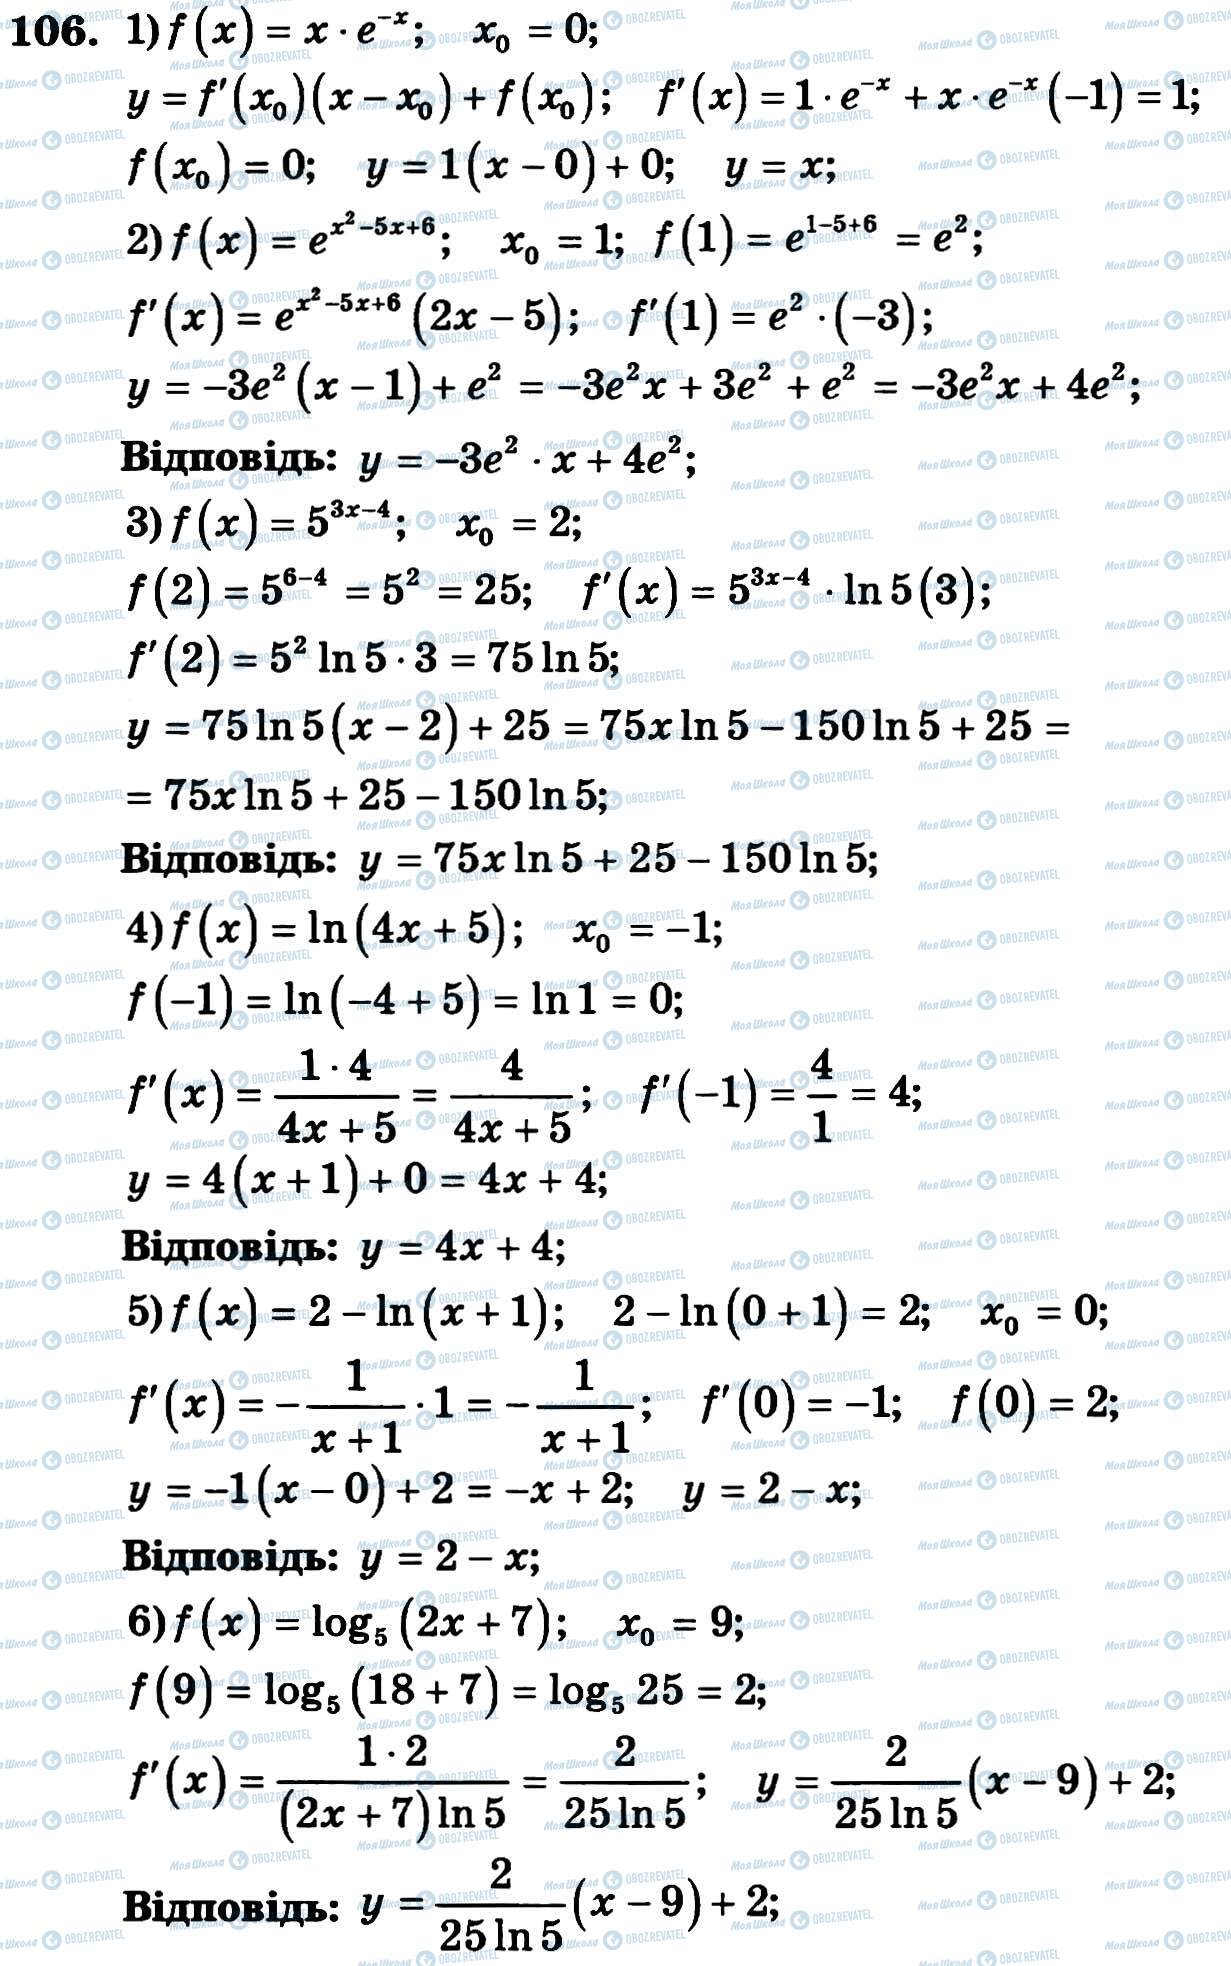 106. 1) f(x) = x · e^{-x}; x₀ = 0;
y = f'(x₀)(x − x₀) + f(x₀); f'(x) = 1 · e^{-x} + x · e^{-x}(−1) = 1;
f(x₀) = 0; y = 1(x − 0) + 0; y = x;
2) f(x) = e^{x²−5x+6}; x₀ = 1; f(1) = e^{1−5+6} = e²;
f'(x) = e^{x²−5x+6}(2x − 5); f'(1) = e² · (−3);
y = −3e²(x − 1) + e² = −3e²x + 3e² + e² = −3e²x + 4e²;
Відповідь: y = −3e² · x + 4e²;
3) f(x) = 5^{3x−4}; x₀ = 2;
f(2) = 5^{6−4} = 5² = 25; f'(x) = 5^{3x−4} · ln 5(3);
f'(2) = 5² ln 5 · 3 = 75 ln 5;
y = 75 ln 5(x − 2) + 25 = 75x ln 5 − 150 ln 5 + 25 =
= 75x ln 5 + 25 − 150 ln 5;
Відповідь: y = 75x ln 5 + 25 − 150 ln 5;
4) f(x) = ln(4x + 5); x₀ = −1;
f(−1) = ln(−4 + 5) = ln 1 = 0;
f'(x) = \frac{1 · 4}{4x + 5} = \frac{4}{4x + 5}; f'(−1) = \frac{4}{1} = 4;
y = 4(x + 1) + 0 = 4x + 4;
Відповідь: y = 4x + 4;
5) f(x) = 2 − ln(x + 1); 2 − ln(0 + 1) = 2; x₀ = 0;
f'(x) = −\frac{1}{x + 1} · 1 = −\frac{1}{x + 1}; f'(0) = −1; f(0) = 2;
y = −1(x − 0) + 2 = −x + 2; y = 2 − x;
Відповідь: y = 2 − x;
6) f(x) = log₅(2x + 7); x₀ = 9;
f(9) = log₅(18 + 7) = log₅ 25 = 2;
f'(x) = \frac{1 · 2}{(2x + 7) ln 5} = \frac{2}{25 ln 5}; y = \frac{2}{25 ln 5}(x − 9) + 2;
Відповідь: y = \frac{2}{25 ln 5}(x − 9) + 2;